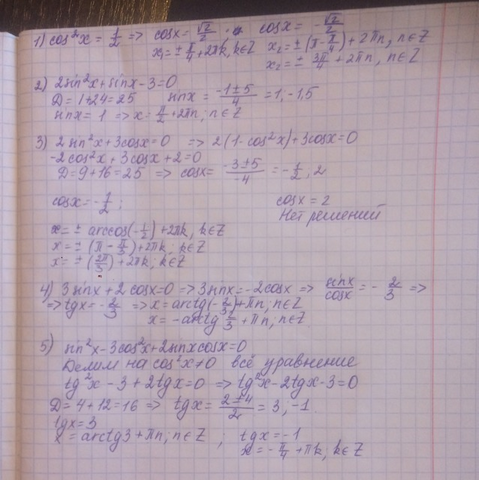 1) cos²x = 1/2 => cosx = √2/2 и cosx = -√2/2
x₁ = ± π/4 + 2πk, k∈Z x₂ = ± (π - π/4) + 2πn, n∈Z
x₂ = ± 3π/4 + 2πn, n∈Z
2) 2sin²x + sinx - 3 = 0
D = 1 + 24 = 25 sinx = (-1 ± 5)/4 = 1, -1,5
sinx = 1 => x = π/2 + 2πn, n∈Z
3) 2sin²x + 3cosx = 0 => 2(1 - cos²x) + 3cosx = 0
-2cos²x + 3cosx + 2 = 0
D = 9 + 16 = 25 => cosx = (-3 ± 5)/-4 = -1/2, 2
cosx = -1/2; cosx = 2
Нет решений
x = ± arccos(-1/2) + 2πk, k∈Z
x = ± (π - π/3) + 2πk, k∈Z
x = ± (2π/3) + 2πk, k∈Z
4) 3sinx + 2cosx = 0 => 3sinx = -2cosx => sinx/cosx = -2/3 =>
=> tgx = -2/3 => x = arctg(-2/3) + πn, n∈Z
x = -arctg 2/3 + πn, n∈Z
5) sin²x - 3cos²x + 2sinxcosx = 0
Делим на cos²x ≠ 0 всё уравнение
tg²x - 3 + 2tgx = 0 => tg²x - 2tgx - 3 = 0
D = 4 + 12 = 16 => tgx = (2 ± 4)/2 = 3, -1
tgx = 3
x = arctg3 + πn, n∈Z ; tgx = -1
x = -π/4 + πk, k∈Z